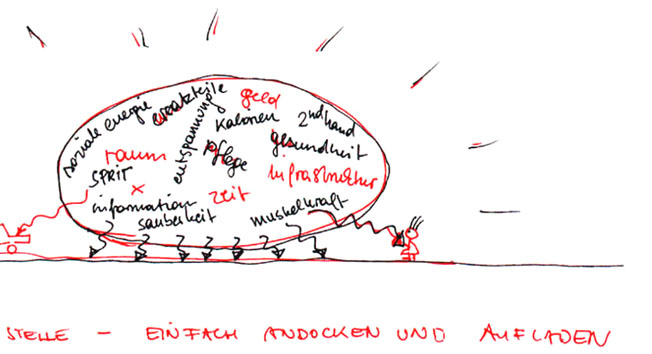 soziale energie
ersatzteile
geld
kalorien
2nd hand
entspannung
gesundheit
raum
pflege
SPRIT
infrastruktur
zeit
information
sauberkeit
muskelkraft
STELLE – EINFACH ANDOCKEN UND AUFLADEN